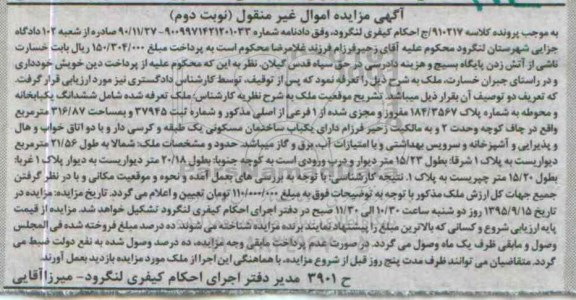 آگهی مزایده اموال غیر منقول (نوبت دوم)
به موجب پرونده کلاسه ۹۱۰۲۱۷/ج احکام کیفری لنگرود، وفق دادنامه شماره ۹۰۰۹۹۷۱۴۲۱۲۰۱۰۳۳-۹۰/۱۱/۲۷ صادره از شعبه ۱۰۲ دادگاه
جزایی شهرستان لنگرود محکوم علیه آقای رنجبرفرام فرزند غلامرضا محکوم است به پرداخت مبلغ ۱۵۰/۳۰۴/۰۰۰ ریال بابت خسارت
ناشی از آتش زدن پایگاه بسیج و هزینه دادرسی در حق سپاه قدس گیلان. نظر به این که محکوم علیه از پرداخت دین خویش خودداری
و در راستای جبران خسارت، ملک به شرح ذیل را تعرفه نمود که پس از توقیف، توسط کارشناس دادگستری نیز مورد ارزیابی قرار گرفت.
که تعریف دو توصیف آن بقرار ذیل میباشد. تشریح موقعیت ملک به شرح نظریه کارشناس: ملک تعرفه شده شامل ششدانگ یکبابخانه
و محوطه به شماره پلاک ۱۸۴/۳۵۶۷ مفروز و مجزی شده از ۱ فرعی از اصلی مذکور و شماره ثبت ۳۷۹۴۵ و بمساحت ۳۱۶/۸۷ مترمربع
واقع در چاف کوچه وحدت ۲ و به مالکیت فرزام دارای یکباب ساختمان مسکونی یک طبقه و کرسی دار و با دو اتاق خواب و هال
و پذیرایی و آشپزخانه و سرویس بهداشتی و با امتیازات آب، برق و گاز میباشد. حدود و مشخصات ملک: شمالا به طول ۲۱/۵۶ مترمربع
دیواریست به پلاک ۱ شرقا: بطول ۱۵/۲۳ متر دیوار و درب ورودی است به کوچه جنوبا: بطول ۲۰/۱۸ متر دیواریست به دیوار پلاک ۱ غربا:
بطول ۱۵/۲۰ متر چپریست به پلاک ۱. نتیجه کارشناسی: با توجه به بررسی های بعمل آمده و نحوه و موقعیت مکانی و با در نظر گرفتن
جمیع جهات کل ارزش ملک مذکور با توجه به توضیحات فوق به مبلغ ۱۱۰/۰۰۰/۰۰۰ تومان تعیین و اعلام می گردد. تاریخ مزایده: مزایده در
تاریخ ۱۳۹۵/۹/۱۵ روز دو شنبه ساعت ۱۰/۳۰ الی ۱۱/۳۰ صبح در دفتر اجرای احکام کیفری لنگرود تشکیل خواهد شد. مزایده از قیمت
پایه ارزیابی شروع و کسانی که بالاترین مبلغ را پیشنهاد نمایند برنده مزایده شناخته می شوند. ده درصد مبلغ فروخته شده فی المجلس
وصول و مابقی ظرف یک ماه وصول می گردد. در صورت عدم پرداخت مابقی وجه مزایده، ده درصد وصول شده به نفع دولت ضبط می
گردد. متقاضیان می توانند ظرف مدت پنج روز قبل از شروع مزایده، با هماهنگی این اجرا از ملک مورد مزایده بازدید بعمل آورند.
ح ۳۹۰۱ مدیر دفتر اجرای احکام کیفری لنگرود- میرزاآقایی